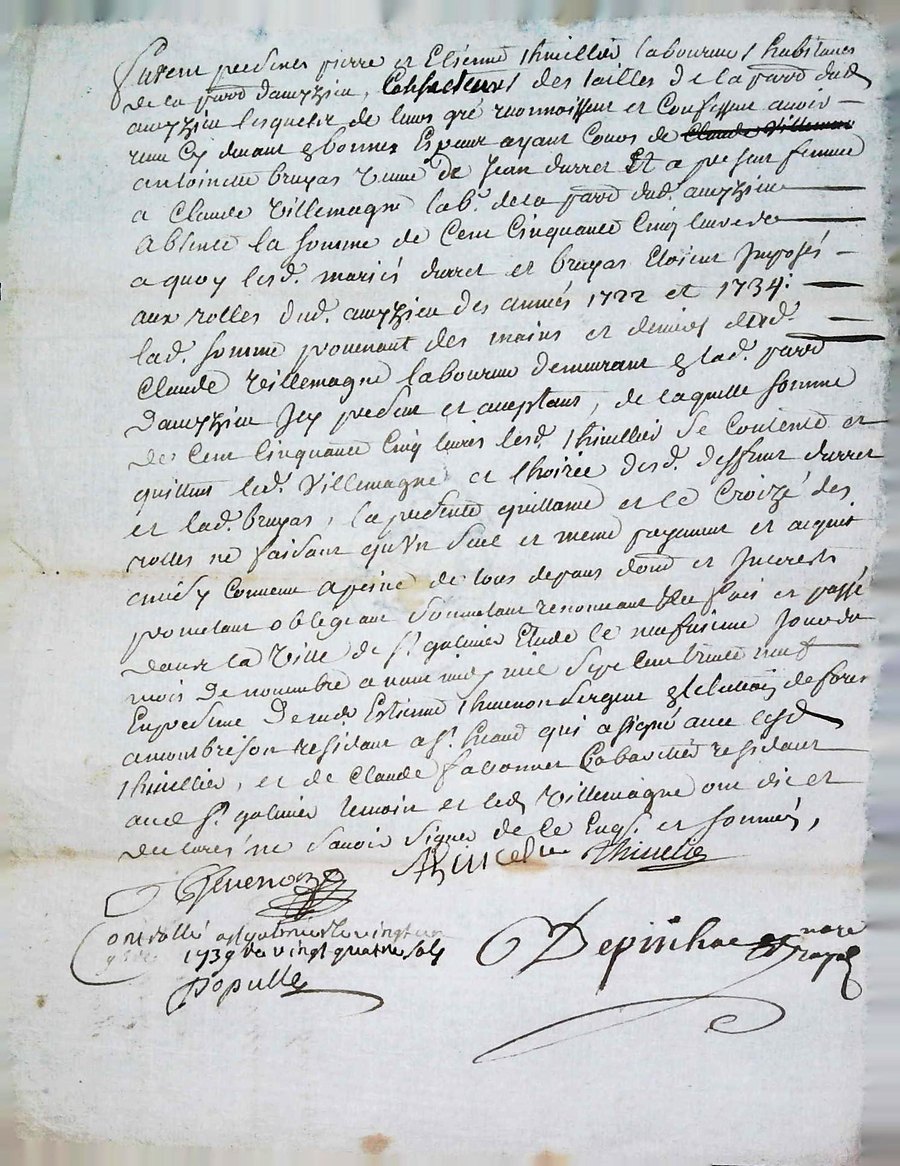 furent presents pierre et Etienne thiuellier laboureurs habitants
de la parr d'auyzieu, Collecteurs des tailles de la parr dud
auyzieu lesquels de leurs gré reconnoissent et Confessent avoir
receu Cy devant & bonnes Especes ayant Cours de Claude Villemane
antoinette bruyas veuve de Jean durret Et a present femme
a Claude Villemagne lab. de la parr dud. auyzieu
absente la somme de Cent Cinquante Cinq livres
a quoy lesd. mariés durret et bruyas Etoient Imposés
aux rolles dud. auyzieu des annés 1722 et 1734.
lad. somme provenant des mains et deniers dud.
Claude Villemagne laboureur demeurant & lad. parr
d'auyzieu Icy present et aceptant, de laquelle somme
de Cent Cinquante Cinq livres lesd. thiuellier se Contente et
quittent led. Villemagne et l'hoirée dud. deffunt durret
et lad. bruyas, la presente quittance et le Croizé des
rolles ne faisant qu'vn seul et meme payement et acquit
ainsy Convenu a peine de tous depans dom et Interests
prometant obligeant soumetant renonceant fait et passé
dans la Ville de st. galmier Etude le neufvieme Jour du
mois de novembre avant midy mil sept cent trente neuf
En presence de me Estienne thuenon sergent & Election de forez
a montbrison residant a st. heand qui a signé avec lesd
thiuellier, et de Claude Cabaretier residant
aud st. galmier temoin et led Villemagne ont dit et
declarés ne savoir signer de Ce Enqs. et sommés,
thuenon thiuellie thiuellie
Controllé a st galmier le vingt un
9bre 1739 vingt quatre sols
Depinhac nore royal
Populle